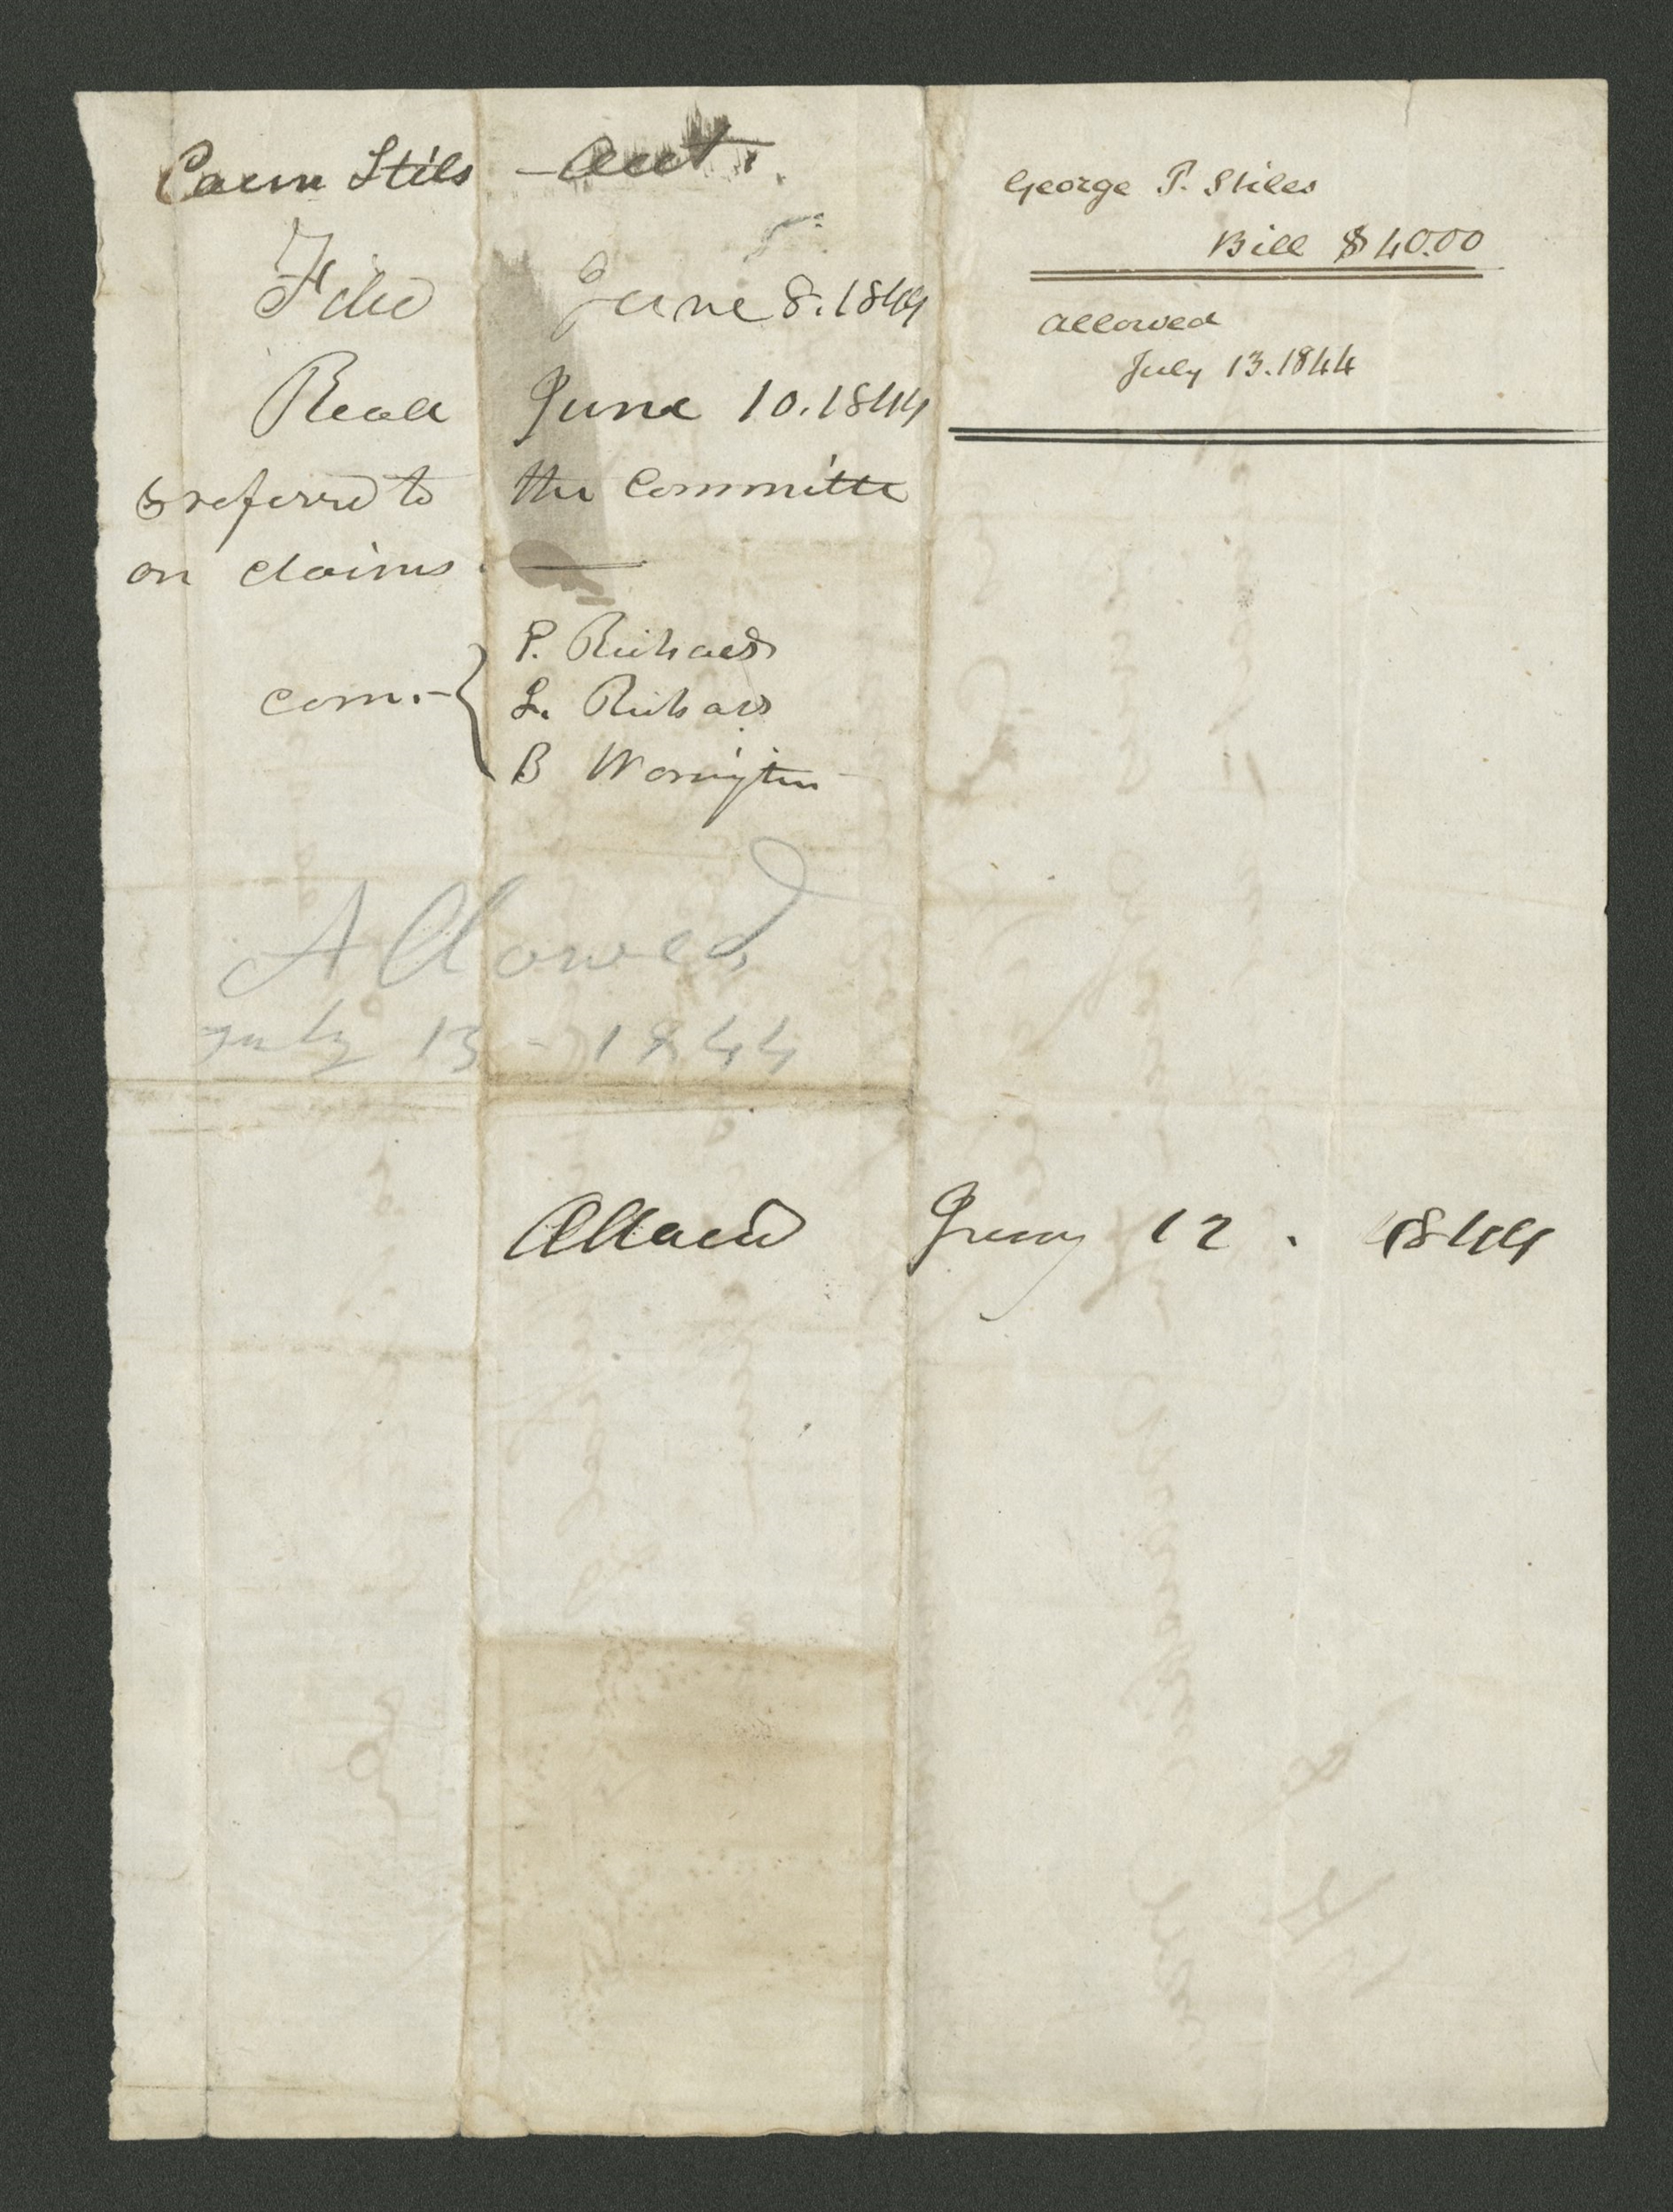 Stils - acct.
Filed June 8. 1844
Read June 10. 1844
& referred to the Committe
on claims. —
com. - { P. Richards
L. Richards
B Worington
Allowed
July 13 - 1844
Allowed 12. 1844
George P. Stiles
Bill $40.00
Allowed
July 13. 1844